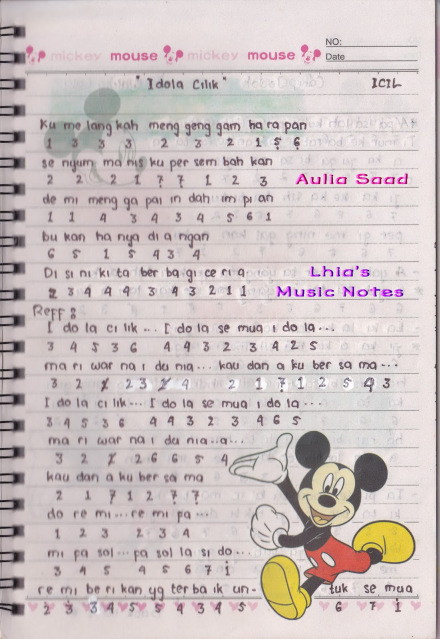 NO:
mickey mouse mickey mouse Date
"Idola Cilik" ICIL
Ku me lang kah meng geng gam ha ra pan
1 3 3 3 2 3 2 1 5 6
se nyum ma nis ku per sem bah kan
2 2 2 1 7 7 1 2 3
Aulia Saad
de mi meng ga pai in dah im pi an
1 1 4 3 4 3 4 5 6 1
bu kan ha nya di a ngan
6 5 1 5 4 3 4
Di si ni ki ta ber ba gi ce ri a
2 3 4 4 4 3 4 3 2 1 1
Lhia's
Music Notes
Reff :
I do la ci lik... I do la se mua i do la...
3 4 5 3 6 4 4 3 2 3 4 2 5
ma ri war na i du nia... kau dan a ku ber sa ma...
3 2 2 3 4 2 1 7 1 2 5 4 3
I do la ci lik... I do la se mua i do la...
3 4 5 3 6 4 4 3 2 3 4 6 5
ma ri war na i du nia..a...
3 2 2 6 6 5 4
kau dan a ku ber sa ma
2 1 7 1 2 7 7
do re mi... re mi fa...
1 2 3 2 3 4
mi fa sol... fa sol la si do...
3 4 5 4 5 6 7 1
re mi be ri kan yg ter ba ik un- tuk se mua
2 3 3 4 5 4 5 4 3 4 5 6 7 1